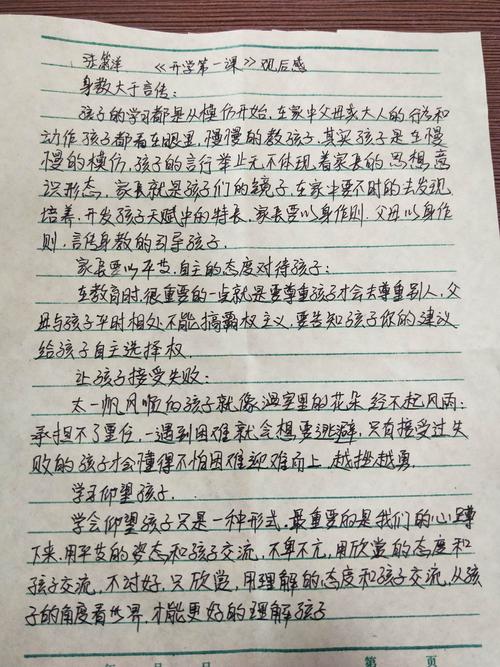 《开学第一课》观后感
身教大于言传：
孩子的学习都是从模仿开始，在家中父母亲大人的行为和
动作孩子都看在眼里，慢慢的教孩子，其实孩子是在慢
慢的模仿，孩子的言行举止无不体现着家长的思想，意
识形态，家长就是孩子们的镜子，在家中要不时的去发现
培养，开发孩子天赋中的特长，家长要以身作则，父母以身作
则，言传身教的引导孩子。
家长要以平等，自主的态度对待孩子：
在教育时，很重要的一点就是要尊重孩子才会去尊重别人，父
母与孩子平时相处不能搞霸权主义，要告知孩子你的建议
给孩子自主选择权。
让孩子接受失败：
太一帆风顺的孩子就像温室里的花朵经不起风雨；
承担不了重任，一遇到困难就会想要逃避，只有接受过失
败的孩子才会懂得不怕困难迎难而上，越挫越勇。
学习仰望孩子。
学会仰望孩子只是一种形式，最重要的是我们的心蹲
下来，用平等的姿态和孩子交流，不卑不亢，用欣赏的态度和
孩子交流，不讨好，只欣赏，用理解的态度和孩子交流，从孩
子的角度看世界，才能更好的理解孩子
年 月 日 第 页